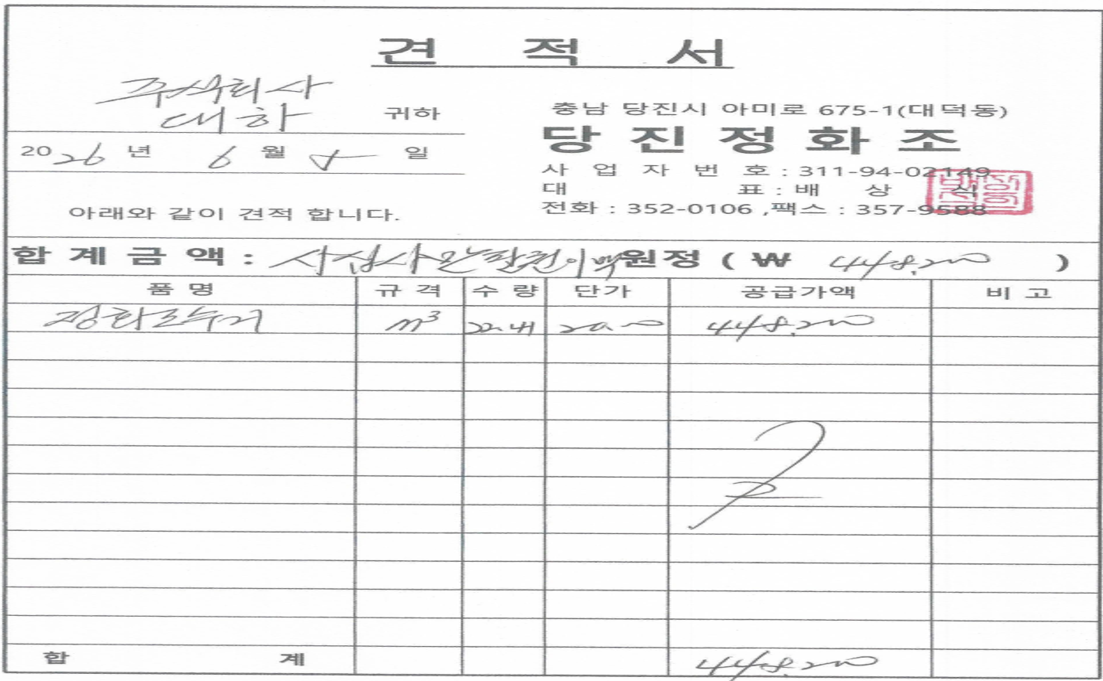 견 적 서
주식회사
대하 귀하
2026 년 6 월 5 일
아래와 같이 견적 합니다.
충남 당진시 아미로 675-1(대덕동)
당진정화조
사 업 자 번 호 : 311-94-02149
대 표 : 배 상 식
전화 : 352-0106 ,팩스 : 357-9588
합 계 금 액 : 사십사만팔천이백원정 ( ₩ 448,200 )
품 명 규 격 수 량 단가 공급가액 비 고
정화조수거 m³ 448,200
합 계 448,200